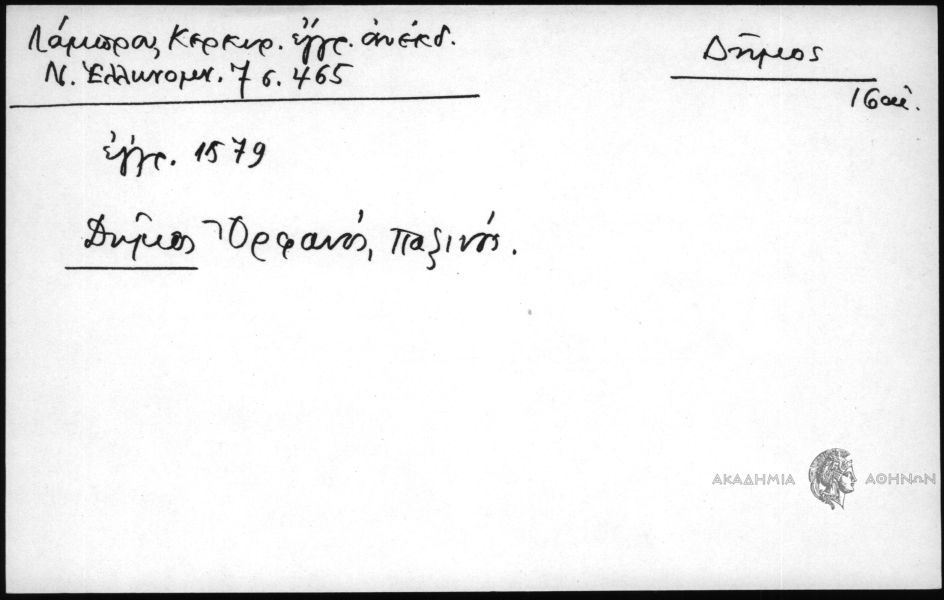 Λάμπρος, Κερκυρ. ἔγγρ. ἀνέκδ.
Ν. Ἑλληνομν. 7 σ. 465
Δῆμος
16 αἰ.
ἔγγρ. 1579
Δῆμος Ὀρφανός, Παξινός.
ΑΚΑΔΗΜΙΑ ΑΘΗΝΩΝ